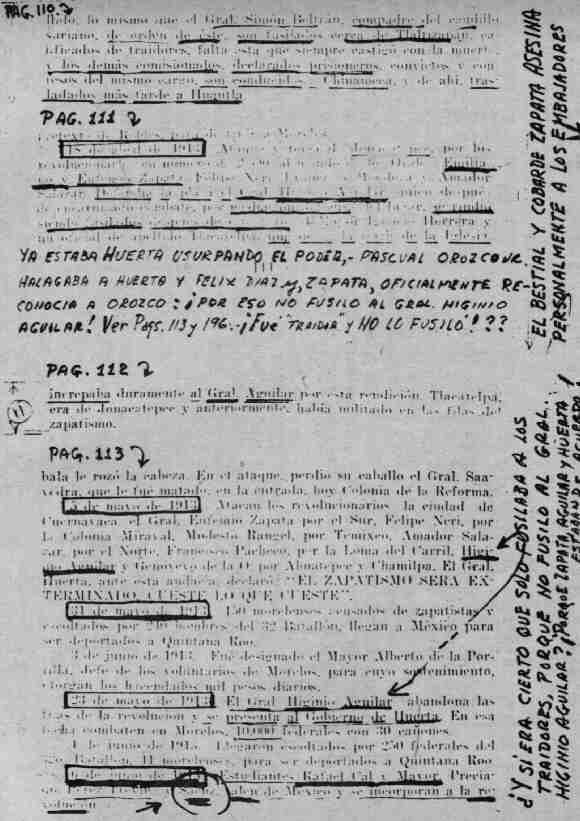 PAG. 110.
llado, lo mismo que el Gral. Simón Beltrán, compadre del caudillo
suriano, de orden de éste, son fusilados cerca de Tlaltizapán, ca-
lificados de traidores, falta esta que siempre castigó con la muerte
y los demás comisionados, declarados prisioneros, convictos y con-
fesos del mismo cargo, son conducidos a Chinameca, y de ahí, tras-
ladados más tarde a Huautla.
PAG. 111
de abril de 1913
por los
revolucionarios, en número de
Emilia-
no y Eufemio Zapata, Felipe Neri,
Mendoza y Amador
Salazar.
el Gral. Higinio Aguilar, quien después
Herrera y
de la Iglesia.
YA ESTABA HUERTA USURPANDO EL PODER,- PASCUAL OROZCO JR.
HALAGABA A HUERTA Y FELIX DIAZ y, ZAPATA, OFICIALMENTE RE-
CONOCIA A OROZCO: ¡POR ESO NO FUSILO AL GRAL. HIGINIO
AGUILAR! Ver Pags. 113 y 196.- ¡Fué "TRAIDOR" y NO LO FUSILO!??
PAG. 112
increpaba duramente al Gral. Aguilar por esta rendición. Tlacatelpa,
era de Jonacatepec y anteriormente, había militado en las filas del
zapatismo.
11
PAG. 113
bala le rozó la cabeza. En el ataque, perdió su caballo el Gral. Saa-
vedra, que le fué matado, en la entrada, hoy Colonia de la Reforma.
5 de mayo de 1913. Atacan los revolucionarios la ciudad de
Cuernavaca, el Gral. Eufemio Zapata por el Sur, Felipe Neri, por
la Colonia Miraval, Modesto Rangel, por Temixco, Amador Sala-
zar, por el Norte, Francisco Pacheco, por la Loma del Carril, Higi-
nio Aguilar y Genovevo de la O. por Ahuatepec y Chamilpa. El Gral.
Huerta, ante esta audacia, declaró: "EL ZAPATISMO SERA EX-
TERMINADO, CUESTE LO QUE CUESTE".
31 de mayo de 1913. 150 morelenses acusados de zapatistas y
escoltados por hombres del 32 Batallón, llegan a México para
ser deportados a Quintana Roo.
3 de junio de 1913. Fué designado el Mayor Alberto de la Por-
tilla, Jefe de los voluntarios de Morelos, para cuyo sostenimiento,
otorgan los hacendados mil pesos diarios.
23 de mayo de 1913. El Gral. Higinio Aguilar abandona las
filas de la revolución y se presenta al Gobierno de Huerta. En esa
fecha combaten en Morelos, 10,000 federales con 30 cañones.
de junio de 1913. Llegaron escoltados por 250 federales del
Batallón, morelenses, para ser deportados a Quintana Roo.
de junio de 1913. Estudiantes Rafael Cal y Mayor, Precia-
Sáenz, salen de México y se incorporan a la re-
volución.
EL BESTIAL Y COBARDE ZAPATA ASESINA
PERSONALMENTE A LOS EMBAJADORES
¿Y SI ERA CIERTO QUE SOLO FUSILABA A LOS
TRAIDORES, PORQUE NO FUSILO AL GRAL.
HIGINIO AGUILAR? ¡PORQUE ZAPATA, AGUILAR Y HUERTA
ESTABAN DE ACUERDO!